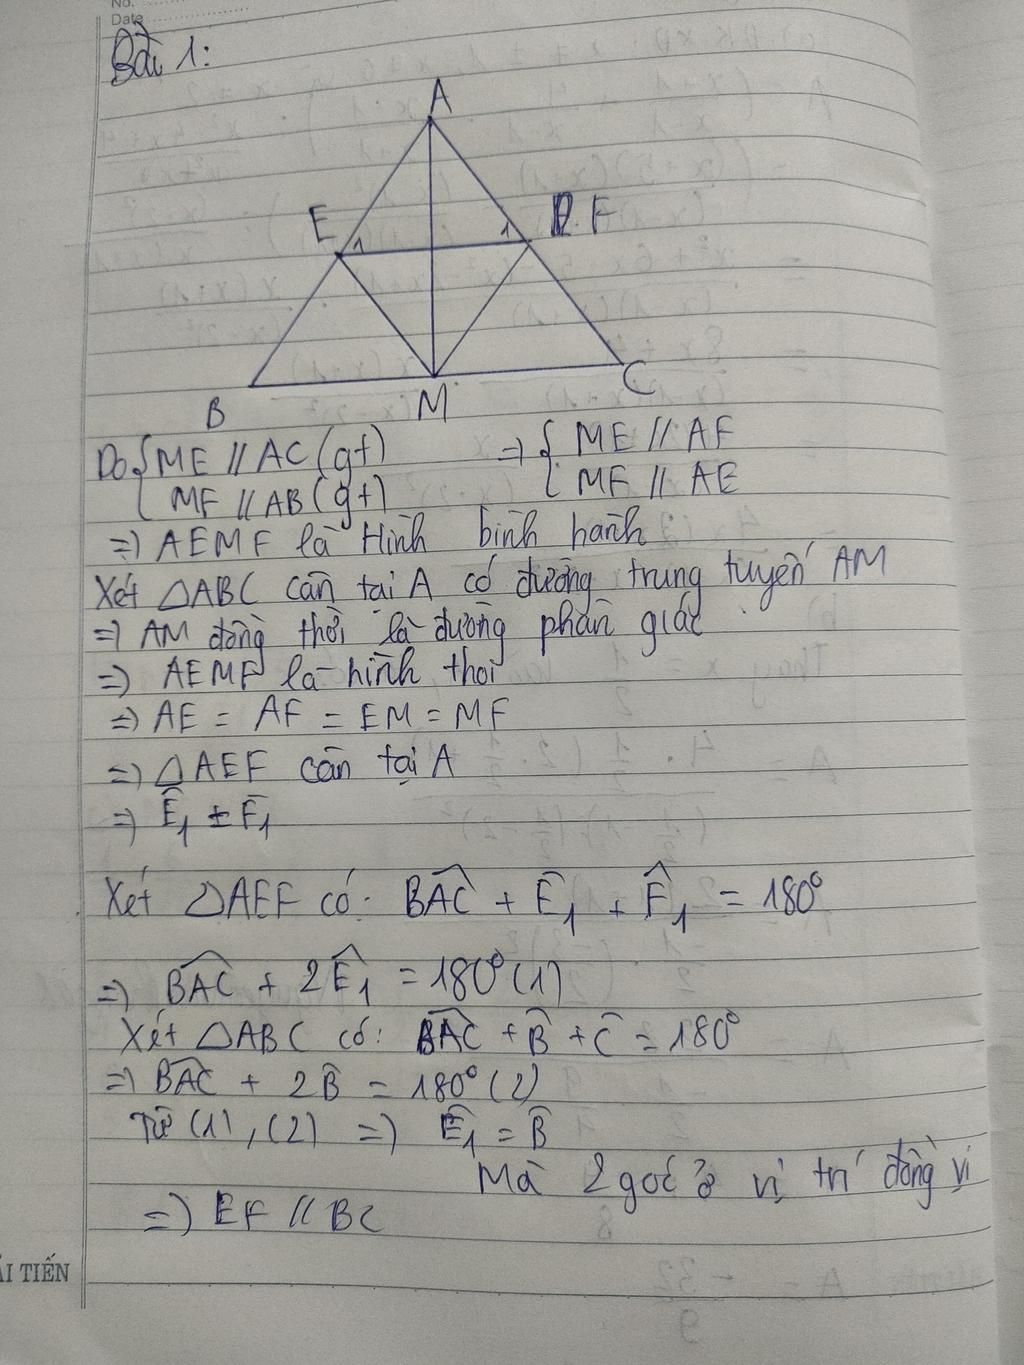 No.
Date
Bài 1:
A
E 1 1 F
B M C
Do { ME // AC (gt) => { ME // AF
MF // AB (gt) MF // AE
=> AEMF là Hình bình hành
Xét △ABC cân tại A có đường trung tuyến AM
=> AM đồng thời là đường phân giác
=> AEMF là hình thoi
=> AE = AF = EM = MF
=> △AEF cân tại A
=> Ê₁ = F̂₁
Xét △AEF có: BAC + Ê₁ + F̂₁ = 180°
=> BAC + 2Ê₁ = 180° (1)
Xét △ABC có: BAC + B̂ + Ĉ = 180°
=> BAC + 2B̂ = 180° (2)
Từ (1), (2) => Ê₁ = B̂
Mà 2 góc ở vị trí đồng vị
=> EF // BC
ẢI TIẾN